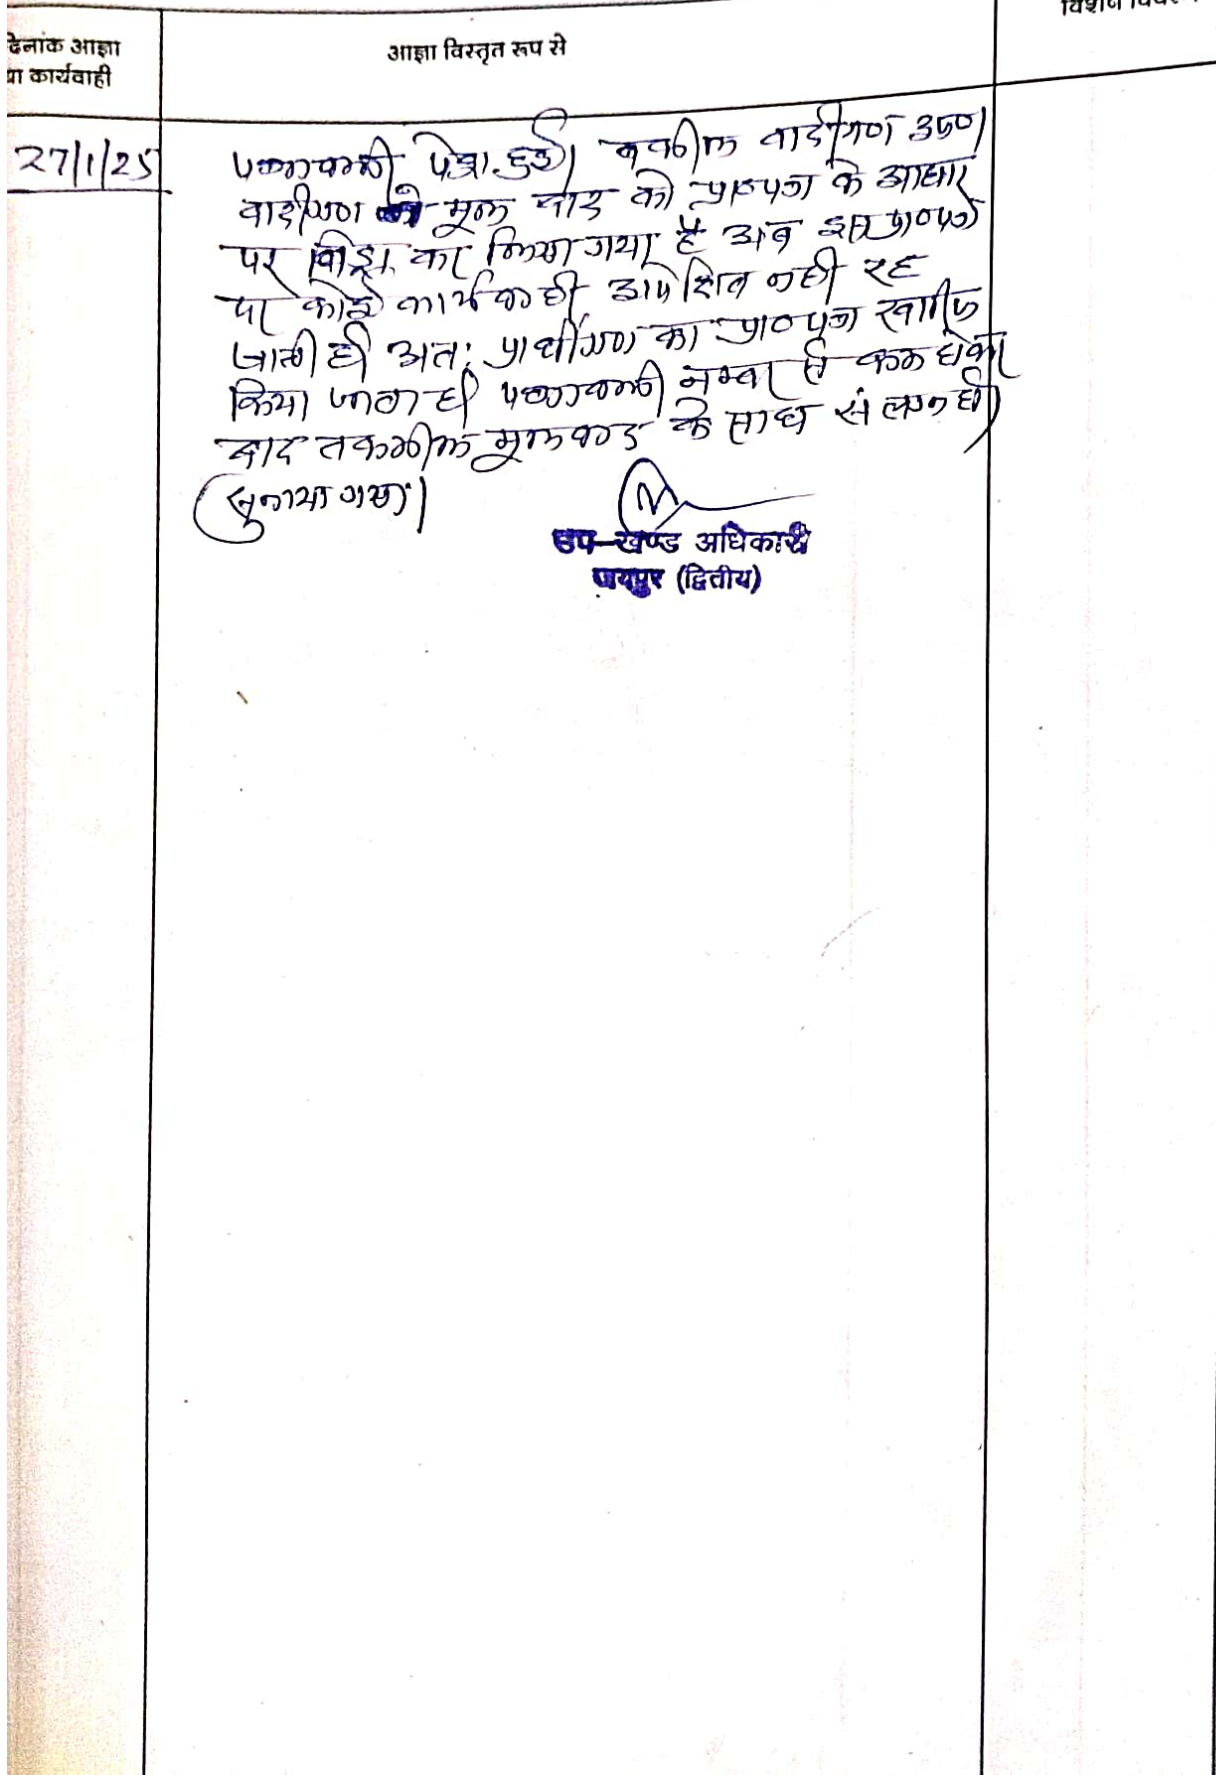 दिनांक आज्ञा
या कार्यवाही
आज्ञा विस्तृत रूप से
विशेष
27/1/25
पत्रावली पेश हुई। वकील वादीगण उप०।
वादीगण ने मूल वाद को प्रा०पत्र के आधार
पर विड्रा कर लिया गया है अब इस प्रा०पत्र
पर कोई कार्यवाही अपेक्षित नही रह
जाती है। अतः प्रार्थीगण का प्रा० पत्र खारीज
किया जाता है। पत्रावली नम्बर से कम होकर
बाद तकमील मूलवाद के साथ संलग्न हो।
सुनाया गया।
उप-खण्ड अधिकारी
जयपुर (द्वितीय)